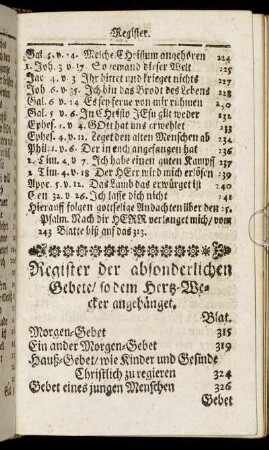 Register.
Gal. 5. v. 14. Welche CHristum angehören 224
1. Joh. 3. v 17. So iemand dieser Welt 125
Jac 4. v 3. Ihr bittet und krieget nichts 127
Joh 6. v. 35. Ich bin das Brodt des Lebens 128
Gal. 6. v 14 Es sey ferne von mir rühmen 130
Gal. 5 v 6. In Christo JEsu gilt weder
Ephes. 1. v 4. GOtt hat uns erwehlet
Ephes. 4. v 22. Leget den alten Menschen ab
Phil. 1. v 6. Der in euch angefangen hat
2. Tim. 4. v 7. Ich habe einen guten Kampf 137
2 Tim. 4. v 18 Der HErr wird mich erlösen 139
Apoc. 5. v 12. Das Lamb das erwürget ist 240
Gen 32. v 26. Ich lasse dich nicht
Hierauff folgen gottselige Andachten über den 25.
Psalm. Nach dir HERR verlanget mich/ vom
243 Blatte biß auf das 313.
Register der absonderlichen
Gebete/ so dem Hertz-We-
cker angehänget.
Blat.
Morgen-Gebet 315
Ein ander Morgen-Gebet 319
Hauß-Gebet/ wie Kinder und Gesinde
Christlich zu regieren 324
Gebet eines jungen Menschen 326
Gebet